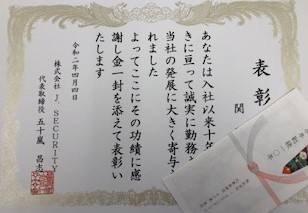 表彰
関
あなたは入社以来十年
きに亘って誠実に勤務
当社の発展に大きく寄与
れました
よってここにその功績に感
謝し金一封を添えて表彰い
たします
令和二年四月四日
株式会社 J．SECURITY
代表取締役 五十嵐 昌志